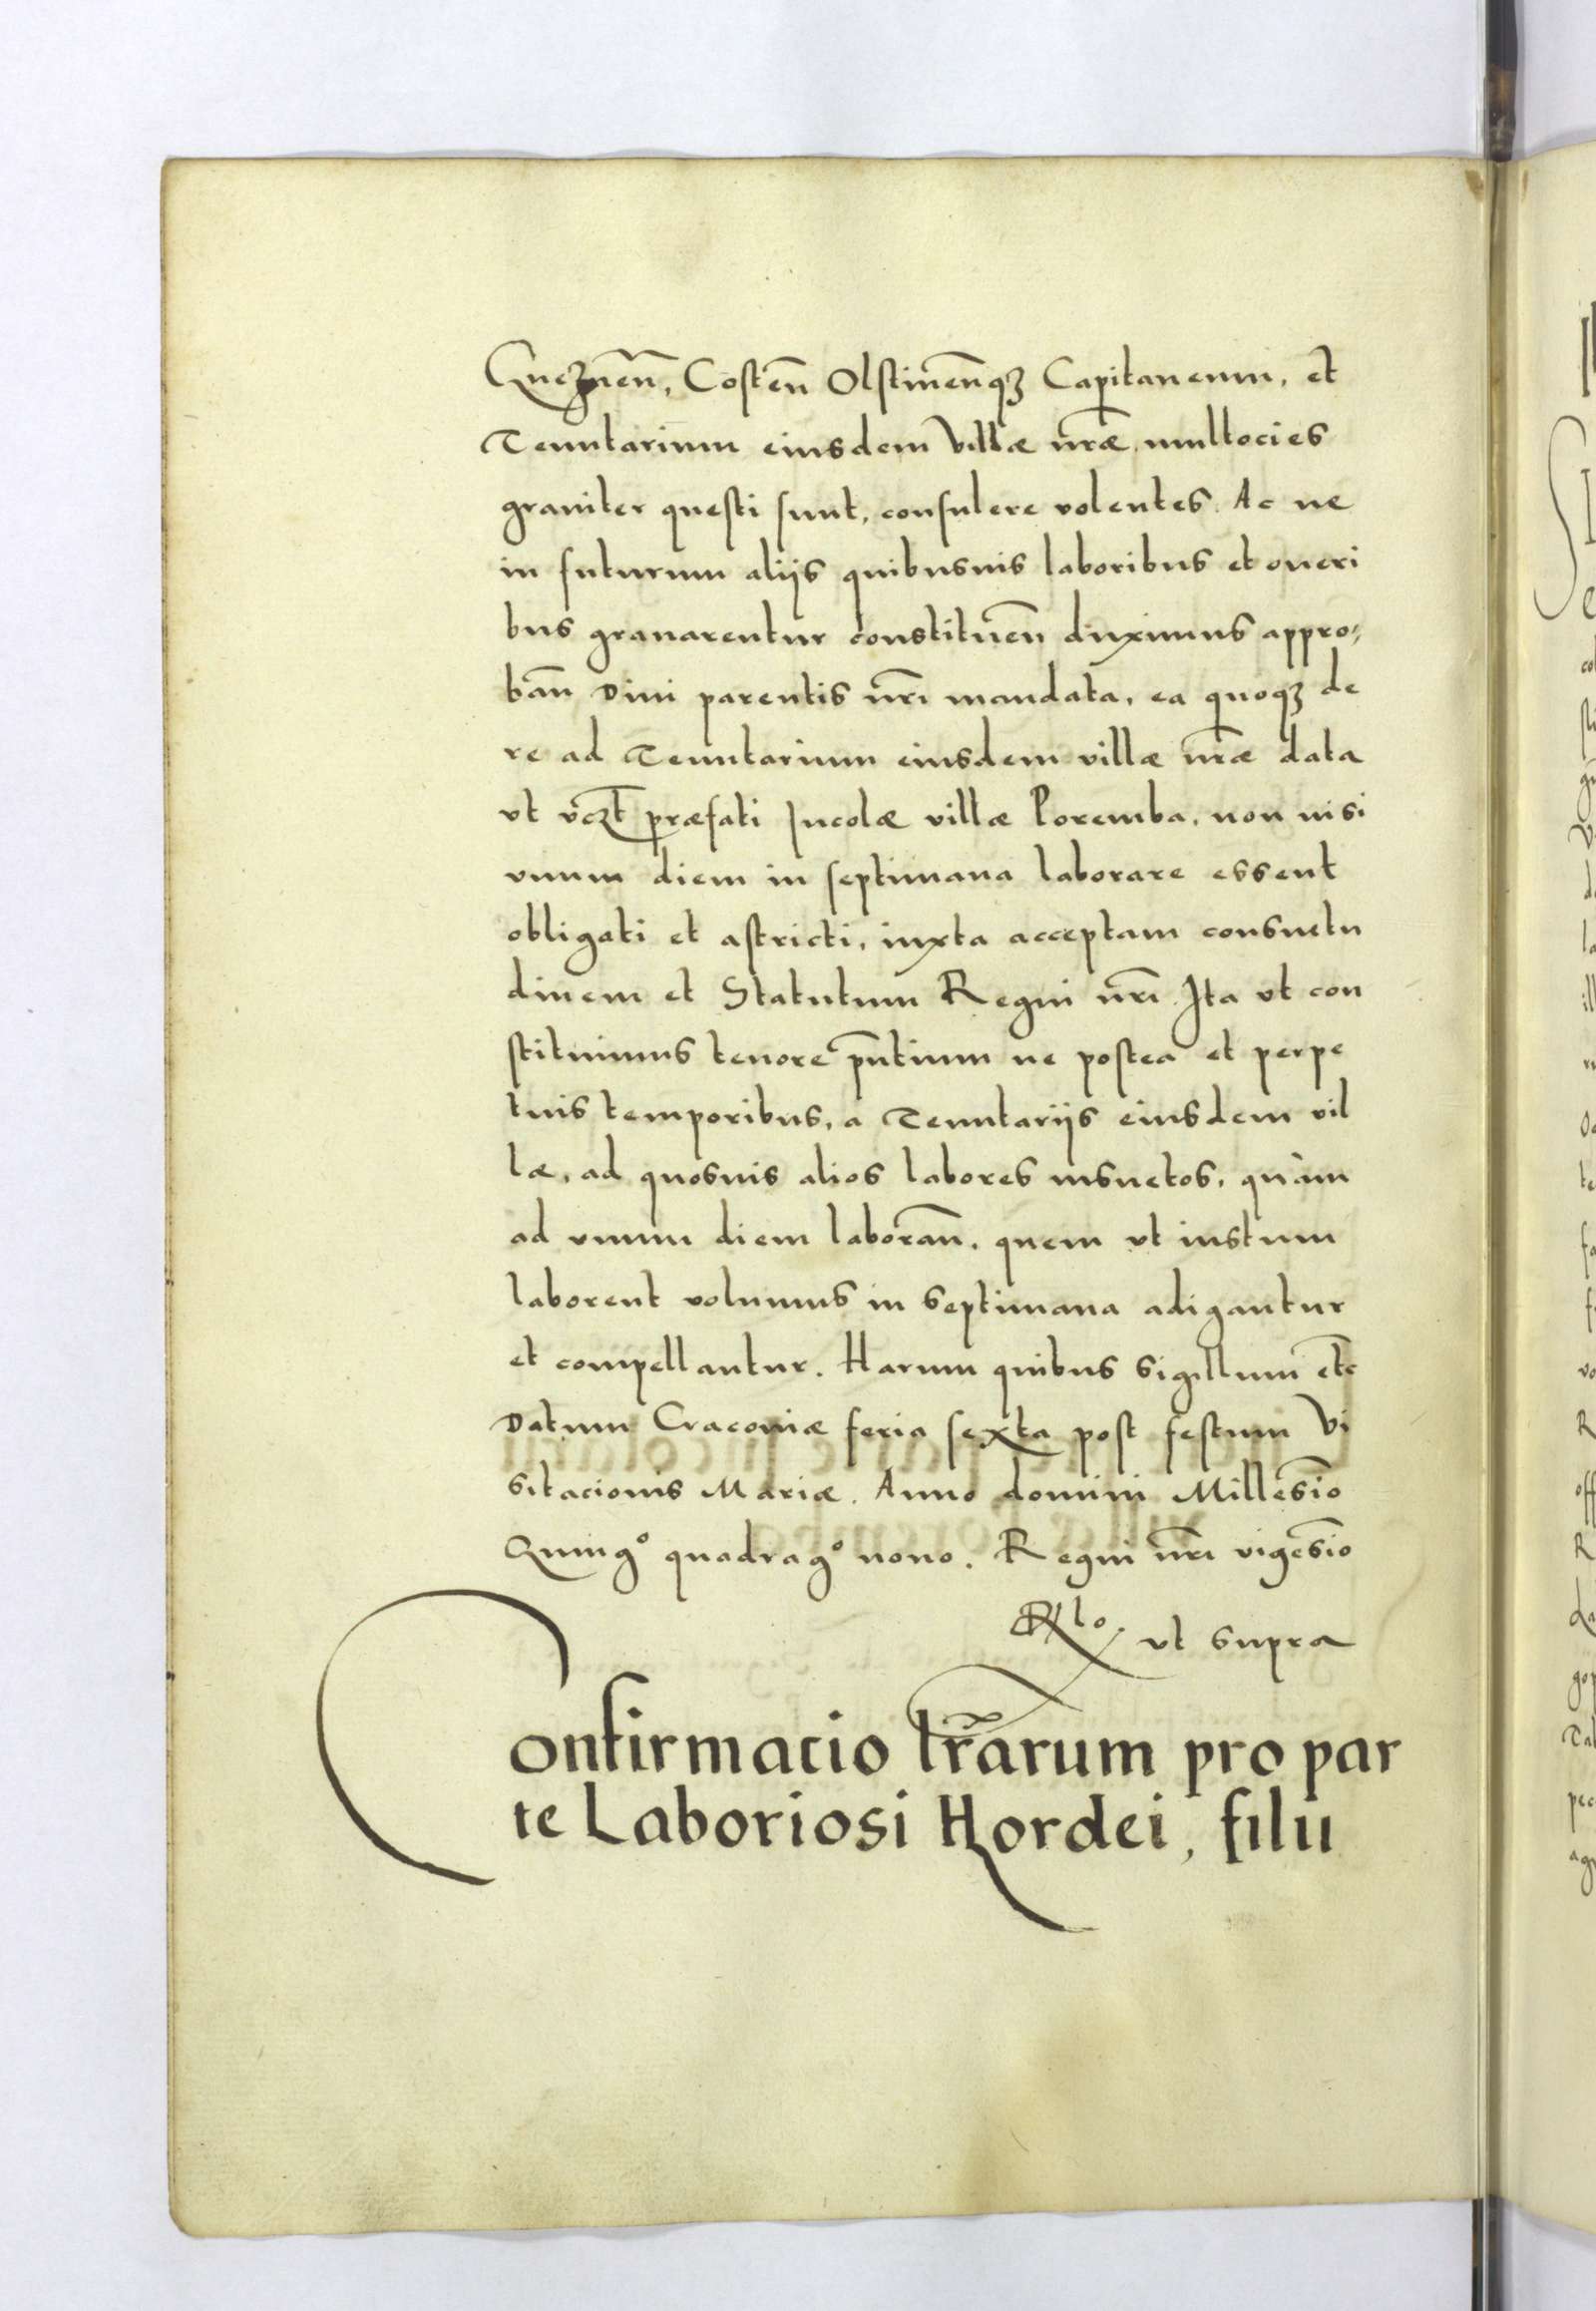 Gneznen̄, Costen̄ Olstinen̄qꝫ Capitaneum, et
Tenutarium eiusdem Villæ nr̄æ, multocies
grauiter questi sunt, consulere volentes. Ac ne
in futurum alijs quibusuis laboribus et oneri
bus grauarentur constituen̄ duximus appro,
ban̄ Diui parentis nr̄i mandata, ea quoqꝫ de
re ad Tenutarium eiusdem villæ nr̄æ data
vt vꝫt præfati Incolæ villæ Poremba, non nisi
vnum diem in septimana laborare essent
obligati et astricti, iuxta acceptam consuetu
dinem et Statutum Regni nr̄i. Ita vt con
stituimus tenore pn̄tium ne postea et perpe
tuis temporibus, a Tenutarijs eiusdem vil
læ, ad quosuis alios labores insuetos, quàm
ad vnum diem laboran̄, quem vt iustum
laborent volumus in septimana adigantur
et compellantur. Harum quibus sigillum etc̄
Datum Cracouiæ feria sexta post festum Vi
sitacionis Mariæ. Anno domini Millesīo
Quingᵒ quadragᵒ nono. Regni nr̄i vigesīo
Rlo. vt supra
Confirmacio lr̄arum pro par
te Laboriosi Hordei, filii